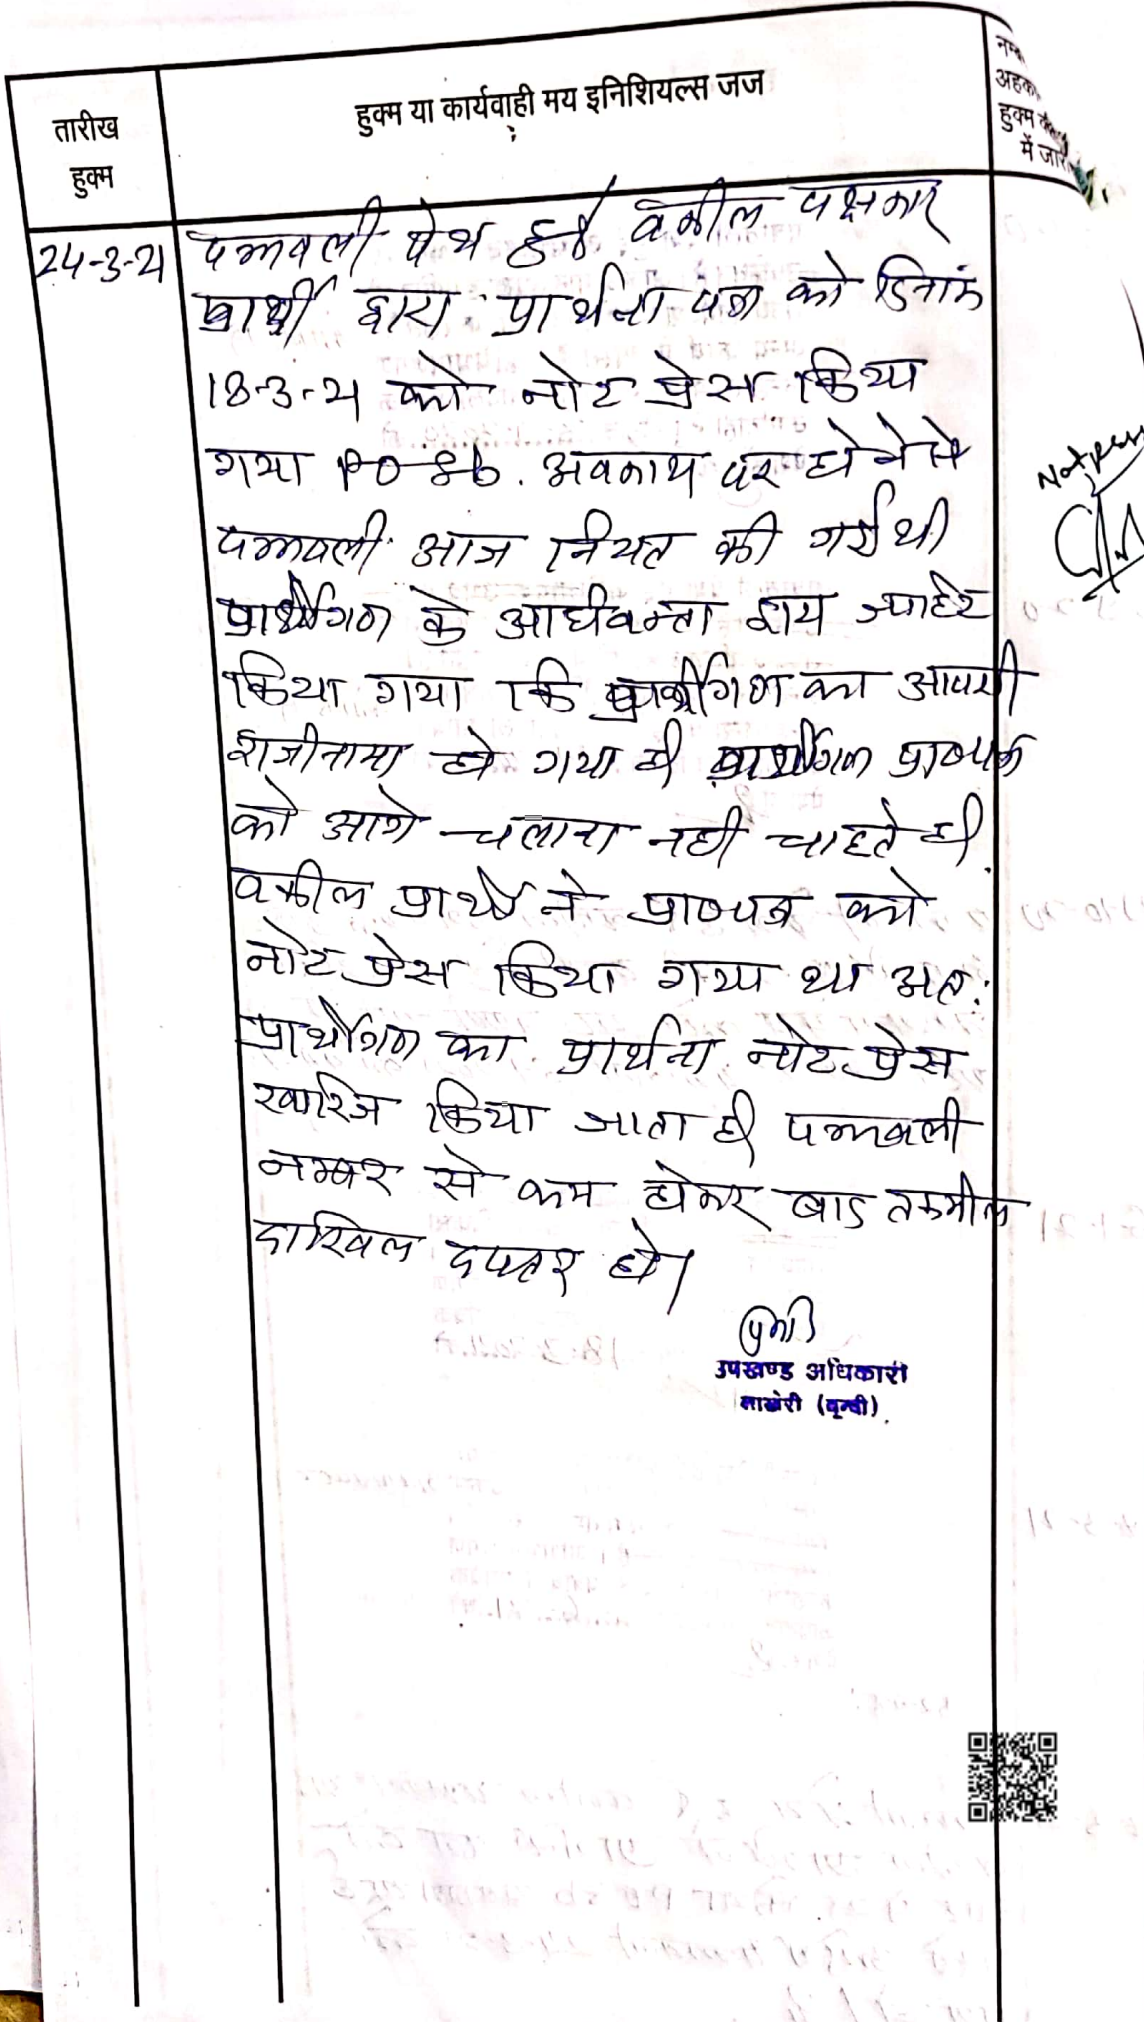 तारीख
हुक्म
हुक्म या कार्यवाही मय इनिशियल्स जज
अहका
हुक्म
में जारी
24-3-21
पत्रावली पेश हुई वकील पक्षकार
प्रार्थी द्वारा प्रार्थना पत्र को दिनांक
18-3-21 को नोट प्रेस किया
गया P.O. सा. अवकाश पर होने से
पत्रावली आज नियत की गई थी
प्रार्थीगण के अधिवक्ता द्वारा जाहिर
किया गया कि प्रार्थीगण का आपसी
राजीनामा हो गया है प्रार्थीगण प्रा०पत्र
को आगे चलाना नहीं चाहते है
वकील प्रार्थी ने प्रा०पत्र को
नोट प्रेस किया गया था अत:
प्रार्थीगण का प्रार्थना नोट प्रेस
खारिज किया जाता है पत्रावली
नम्बर से कम होकर बाद तकमील
दाखिल दफ्तर हो।
Not press
उपखण्ड अधिकारी
लाखेरी (बून्दी)